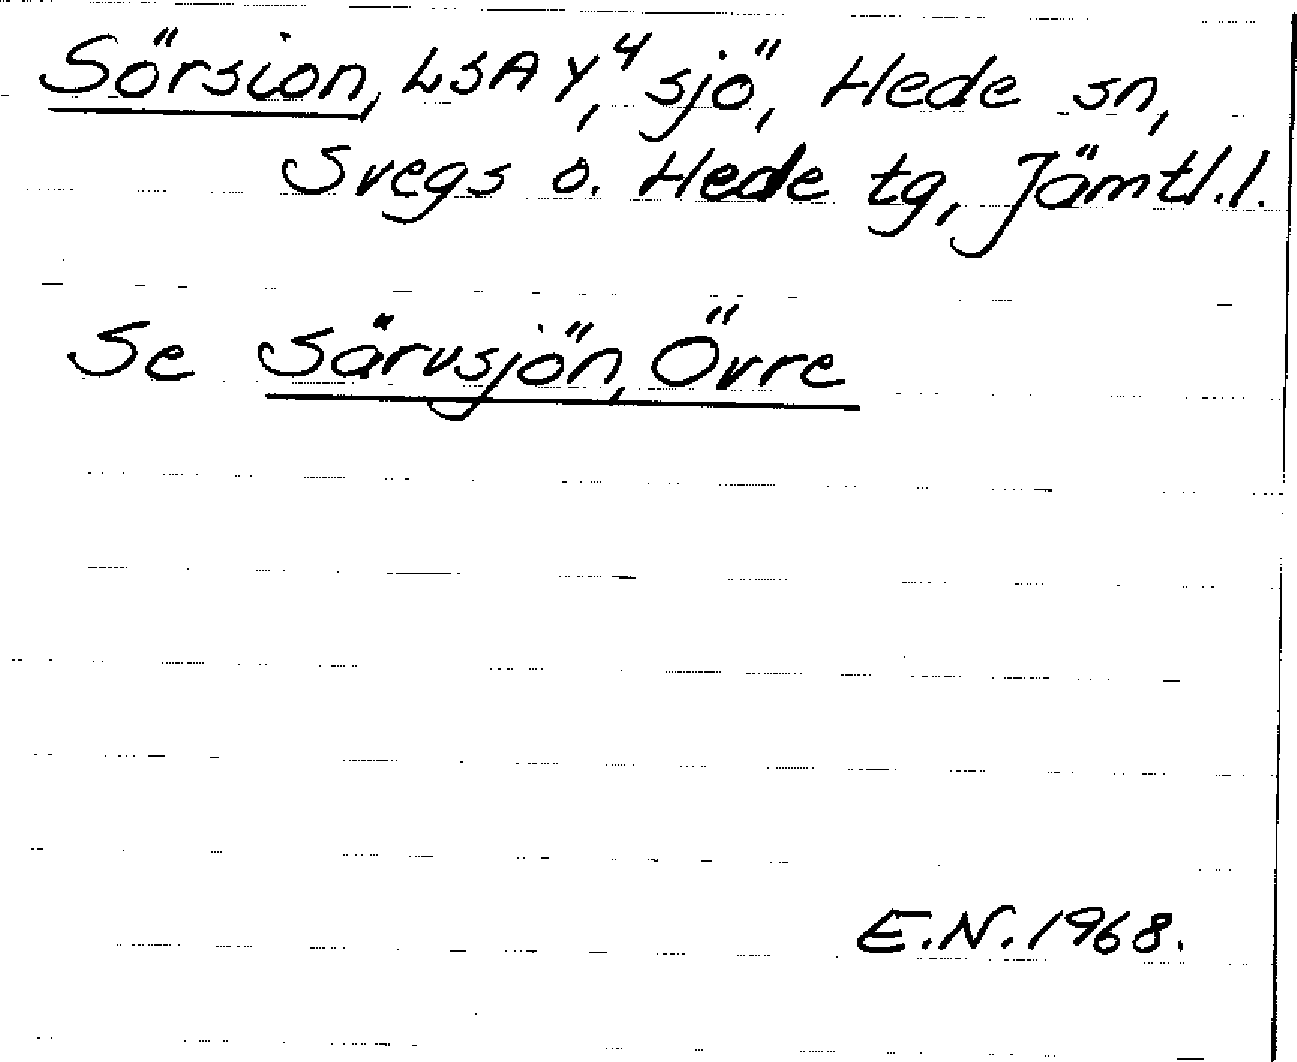 Sörsion, LSA Y⁴, sjö, Hede sn,
Svegs o. Hede tg, Jämtl.l.
Se Särvsjön, Övre
E.N. 1968.